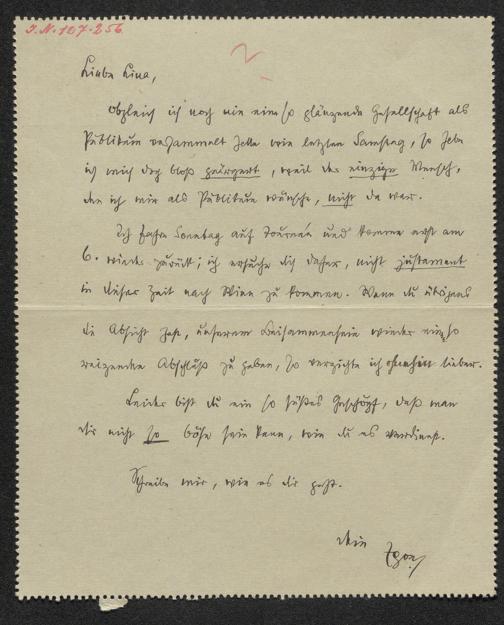 I.N. 187.256
2
Liebe Lina,
Obgleich ich noch nie eine so glänzende Gesellschaft als
Publikum versammelt hatte wie letzten Samstag, so habe
ich mich doch bloß geärgert, weil der einzige Mensch,
den ich mir als Publikum wünsche, nicht da war.
Ich fahre Sonntag auf Tournée und komme erst am
6. wieder zurück; ich ersuche dich daher, nicht justament
in dieser Zeit nach Wien zu kommen. Wenn du übrigens
die Absicht hast, unserem Beisammensein wieder ein so
reizenden Abschluß zu geben, so verzichte ich ohnehin lieber.
Leider bist du ein so süßes Geschöpf, daß man
dir nicht so böse sein kann, wie du es verdienst.
Schreibe mir, wie es dir geht.
Dein Egon